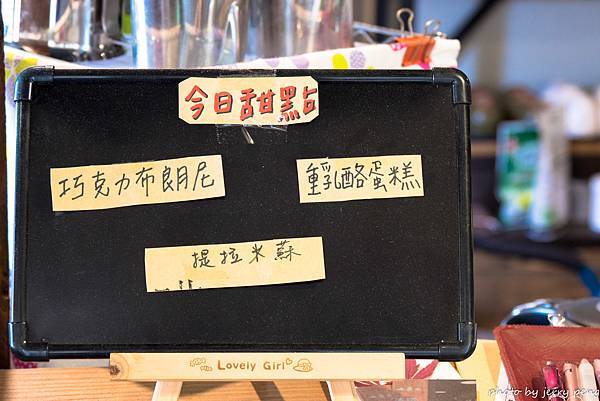 今日甜點
巧克力布朗尼
重乳酪蛋糕
提拉米蘇
Lovely Girl
photo by jerry peng